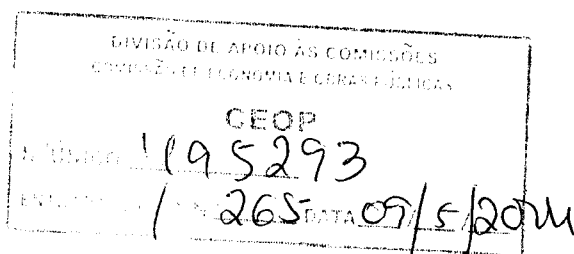 DIVISÃO DE APOIO ÀS COMISSÕES
COMISSÃO DE ECONOMIA E OBRAS PÚBLICAS
CEOP
N.º ÚNICO 495293
265 DATA 09/5/2014